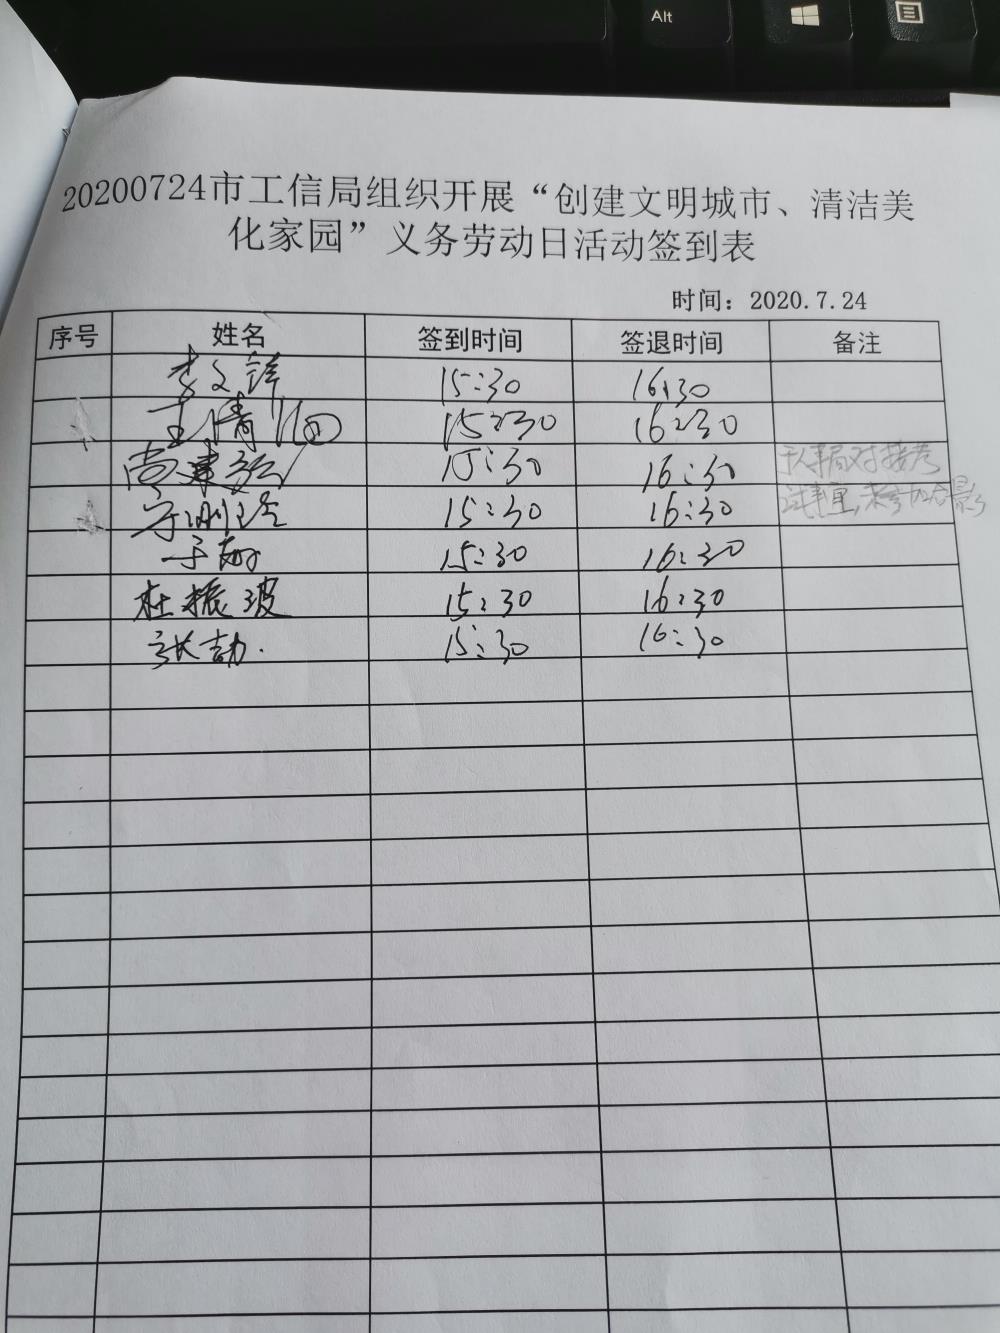 Alt
20200724市工信局组织开展“创建文明城市、清洁美
化家园”义务劳动日活动签到表
时间：2020.7.24
序号 姓名 签到时间 签退时间 备注
李文锋 15:30 16:30
王倩 15:30 16:30
尚建 15:30 16:30 于人事局对接考
15:30 16:30 试事宜,未参加合影
于 15:30 16:30
杜振波 15:30 16:30
张劼. 15:30 16:30